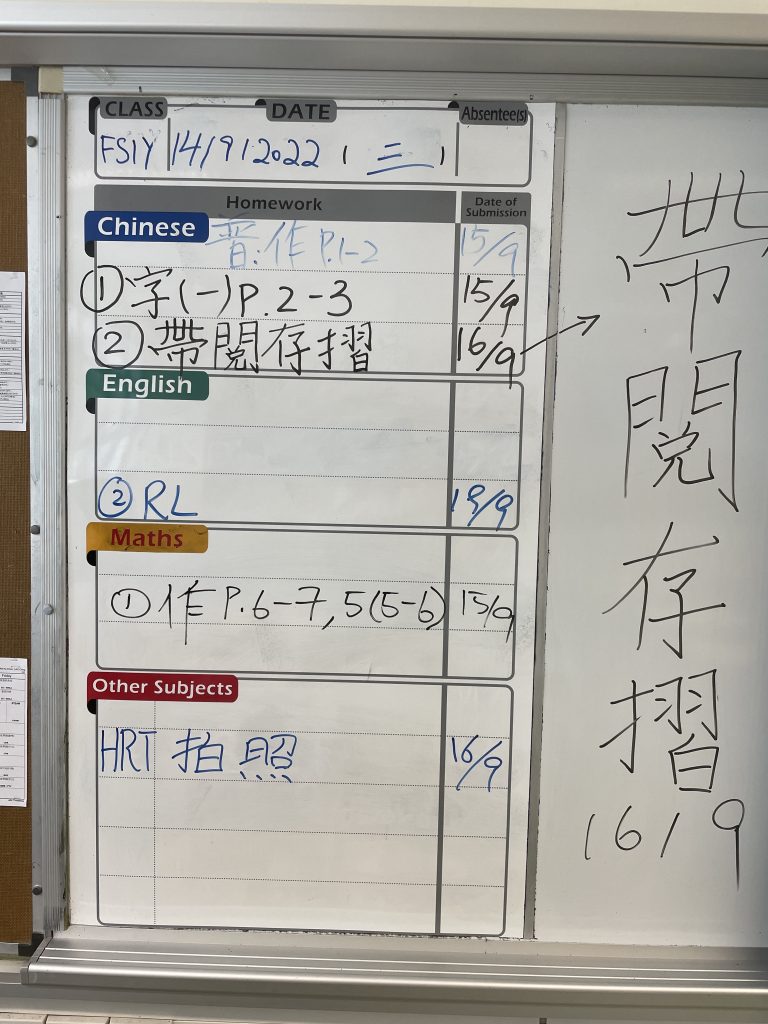 CLASS DATE Absentee(s)
FS1Y 14/9/2022 (三)
Homework Date of Submission
Chinese 普:作 P.1-2 15/9
① 字(一)P.2-3 15/9
② 帶閱存摺 16/9
English
② RL 19/9
Maths
① 作 P.6-7, 5(5-6) 15/9
Other Subjects
HRT 拍照 16/9
帶
閱
存
摺
16/9